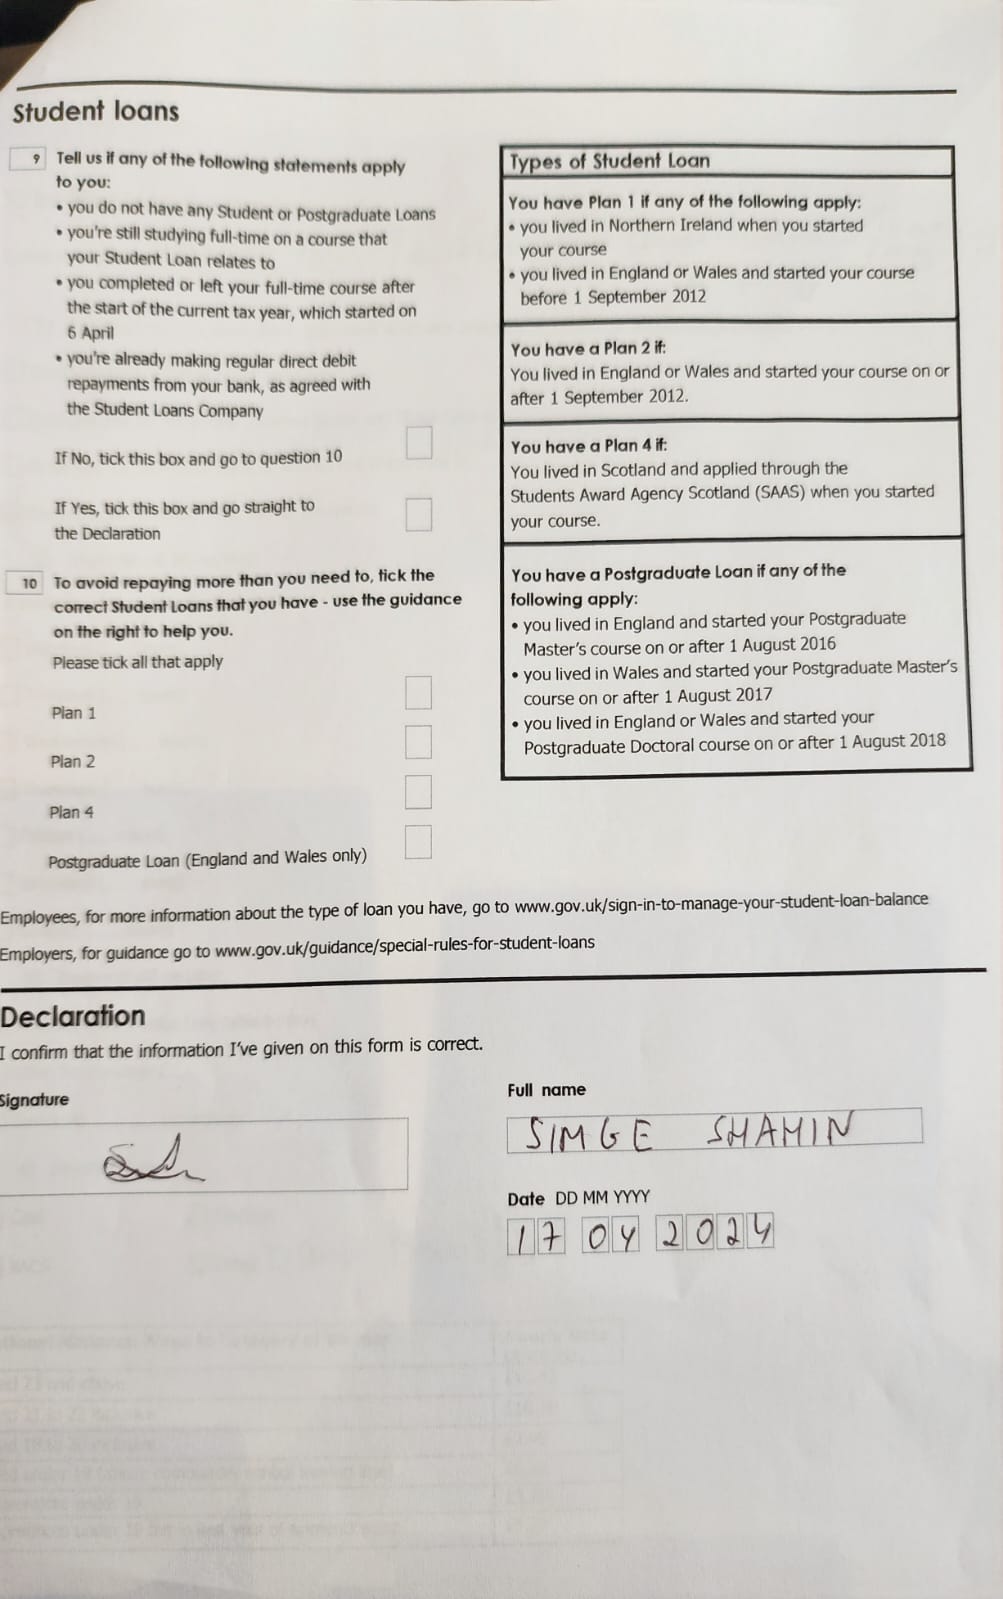 Student loans
9 Tell us if any of the following statements apply
to you:
• you do not have any Student or Postgraduate Loans
• you're still studying full-time on a course that
your Student Loan relates to
• you completed or left your full-time course after
the start of the current tax year, which started on
6 April
• you're already making regular direct debit
repayments from your bank, as agreed with
the Student Loans Company
If No, tick this box and go to question 10
If Yes, tick this box and go straight to
the Declaration
10 To avoid repaying more than you need to, tick the
correct Student Loans that you have - use the guidance
on the right to help you.
Please tick all that apply
Plan 1
Plan 2
Plan 4
Postgraduate Loan (England and Wales only)
Types of Student Loan
You have Plan 1 if any of the following apply:
• you lived in Northern Ireland when you started
your course
• you lived in England or Wales and started your course
before 1 September 2012
You have a Plan 2 if:
You lived in England or Wales and started your course on or
after 1 September 2012.
You have a Plan 4 if:
You lived in Scotland and applied through the
Students Award Agency Scotland (SAAS) when you started
your course.
You have a Postgraduate Loan if any of the
following apply:
• you lived in England and started your Postgraduate
Master's course on or after 1 August 2016
• you lived in Wales and started your Postgraduate Master's
course on or after 1 August 2017
• you lived in England or Wales and started your
Postgraduate Doctoral course on or after 1 August 2018
Employees, for more information about the type of loan you have, go to www.gov.uk/sign-in-to-manage-your-student-loan-balance
Employers, for guidance go to www.gov.uk/guidance/special-rules-for-student-loans
Declaration
I confirm that the information I've given on this form is correct.
Signature
Full name
SIMGE SHAHIN
Date DD MM YYYY
17 04 2024